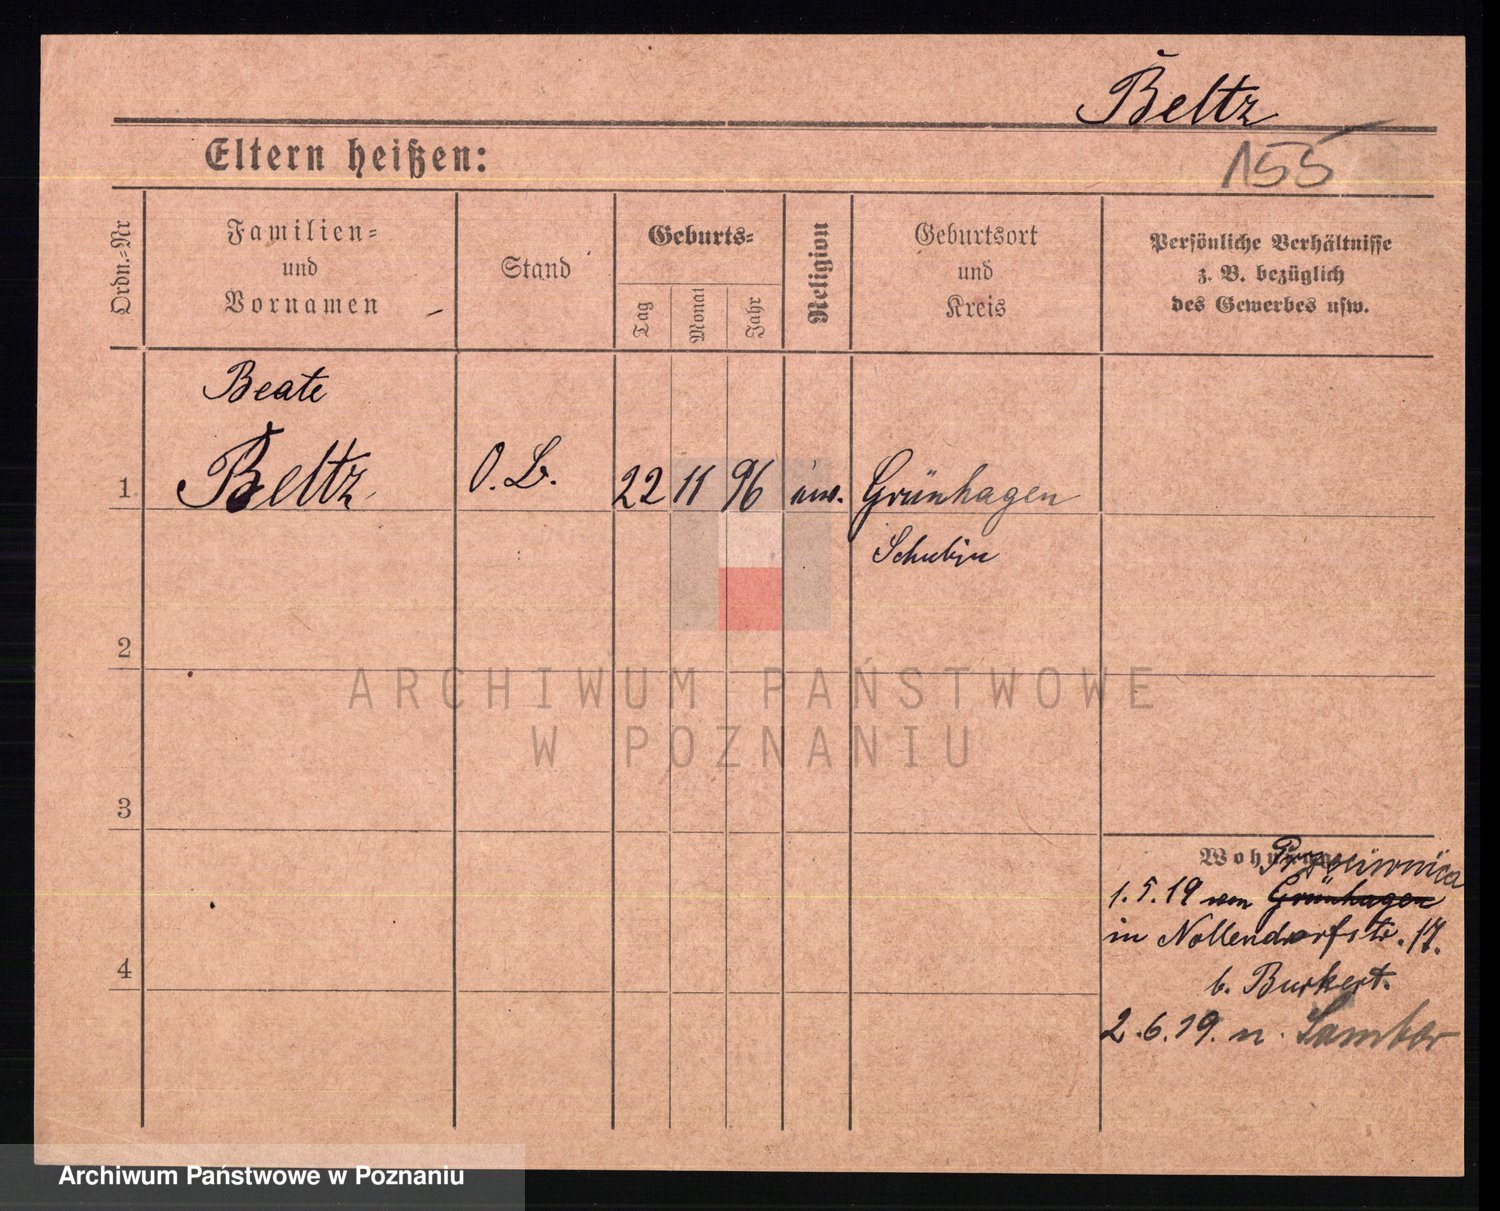 Beltz
Eltern heißen:
155
Ordn.-Nr
Familien-
und
Vornamen
Stand
Geburts-
Tag
Monat
Jahr
Religion
Geburtsort
und
Kreis
Persönliche Verhältnisse
z. B. bezüglich
des Gewerbes usw.
Beate
1 Beltz O. L. 22 11 96 Grünhagen
Schubin
2
ARCHIWUM PAŃSTWOWE
W POZNANIU
3
Wohnung
1.5.19 von Grünhagen
in Nollendorfstr. 17.
b. Burkert.
4
2.6.19. n. Sambor
Archiwum Państwowe w Poznaniu